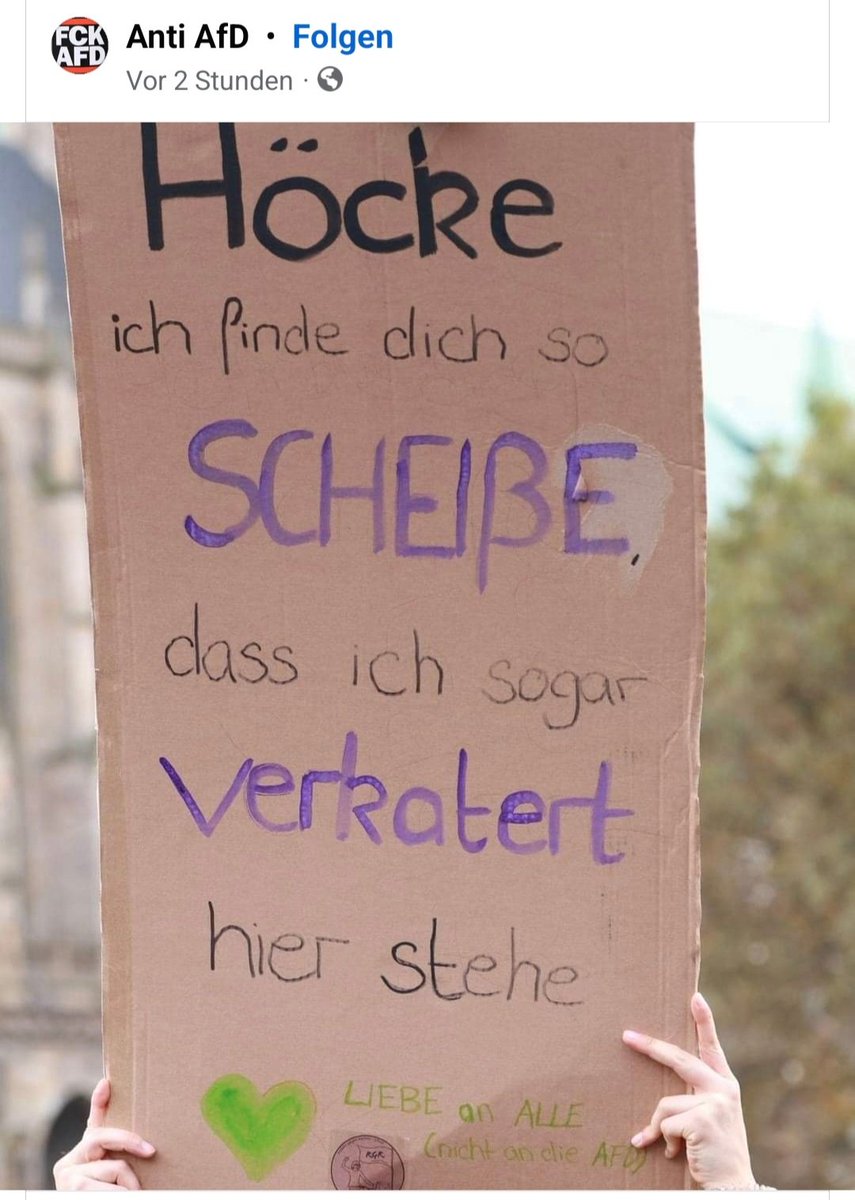 FCK
AFD
Anti AfD • Folgen
Vor 2 Stunden ·
Höcke
ich finde dich so
SCHEIßE,
dass ich sogar
verkatert
hier stehe
LIEBE an ALLE
(nicht an die AFD)
RGR